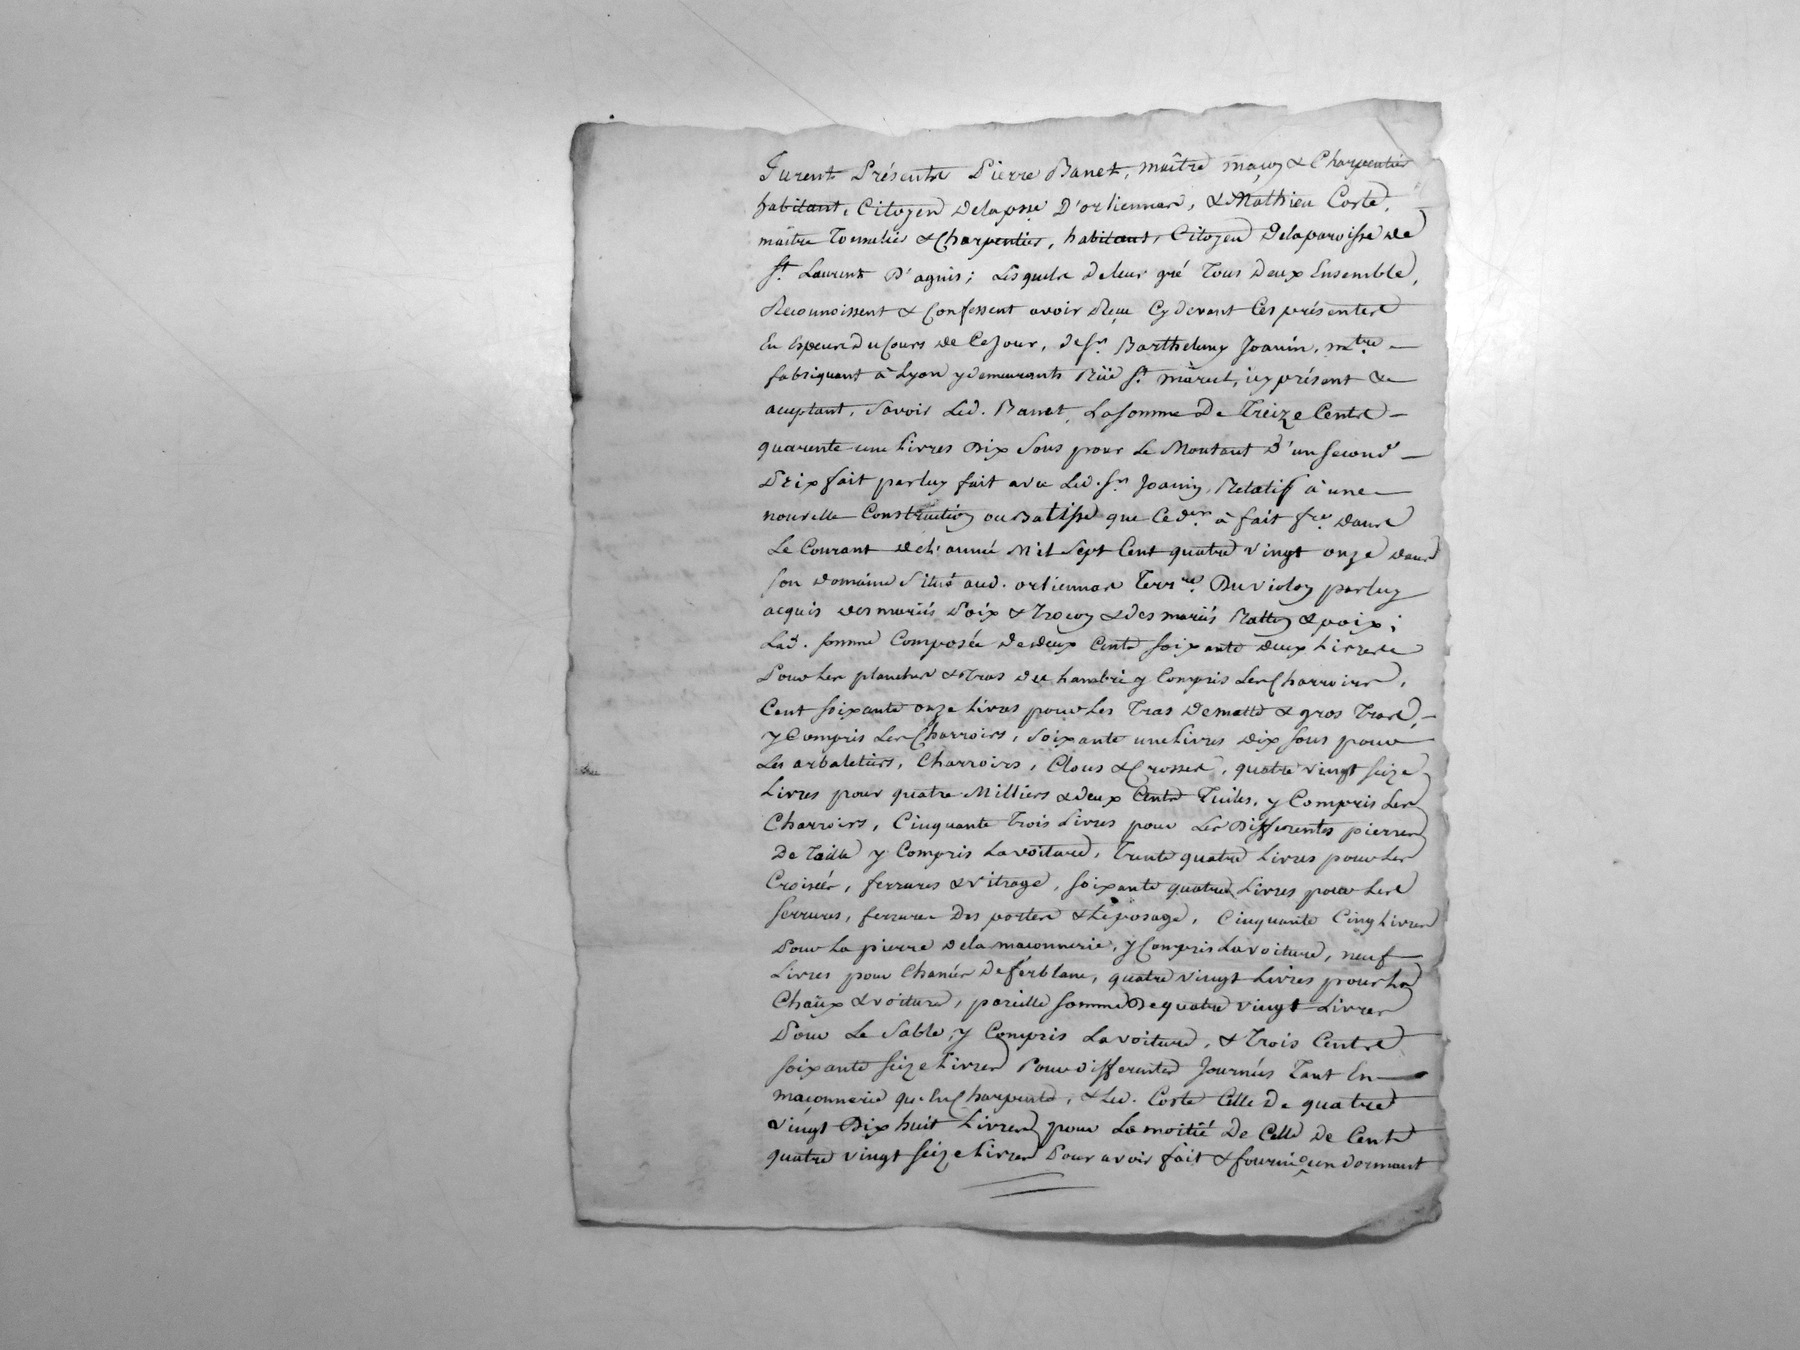 Furent Présents Pierre Banet, maître maçon & Charpentier
habitant, Citoyen delapsse D'orliennas, & Mathieu Coste,
maître Tonnelier & Charpentier, habitant, Citoyen Delaparoisse de
St. Laurent D'agnis; Lesquels de leur gré Tous deux Ensemble,
Reconnoissent & Confessent avoir Reçu Cy devant Ces présentes
En Especes Du Cours de Ce Jour, de Sr. Barthelemy Joanin, mtre
fabriquant à Lyon y demeurants Rüe St. marcel, icy présent &
acceptant, Savoir Led. Banet, La somme De Treize Cents
quarente une Livres Dix Sous pour Le Montant D'un Second
Prix fait par luy fait avec Led. Sr. Joanin, Relatif à une
nouvelle Construction ou Batisse que Ce der. à fait fre. dans
Le Courant de L'année Mil Sept Cent quatre vingt onze dans
son domaine Situé aud. orliennas Terrre. Du violon par luy
acquis des mariés Poix & & des mariés Ratton & poix;
Lad. somme Composée de deux Cents soixante deux Livres
Pour Les planches & Tras de chambre y Compris Les Charroirs,
Cent soixante onze Livres pour Les Tras De matte & gros Tras,
y Compris Les Charroirs, Soixante une Livres dix sous pour
Les arbaletiers, Charroirs, Clous & Crosses, quatre vingt seize
Livres pour quatre Milliers & deux Cents Tuiles, y Compris Les
Charroirs, Cinquante Trois Livres pour Les Differentes pierres
De Taille y Compris La voiture, Trente quatre Livres pour Les
Croisées, ferrures & vitrage, soixante quatre Livres pour Les
serrures, ferrures Des portes & Léposage, Cinquante Cinq Livres
Pour La pierre de la maconnerie, y Compris La voiture, neuf
Livres pour Chanées De ferblanc, quatre vingt Livres pour La
Chaüx & voiture, pareille somme De quatre vingt Livres
Pour Le Sable, y Compris La voiture, & Trois Cents
soixante seize Livres Pour differentes Journées Tant En
maçonnerie qu'En Charpente, & Led. Coste Celle De quatre
vingt Dix huit Livres pour La moitié De Celle de Cent
quatre vingt seize Livres Pour avoir fait & fourni un dormant